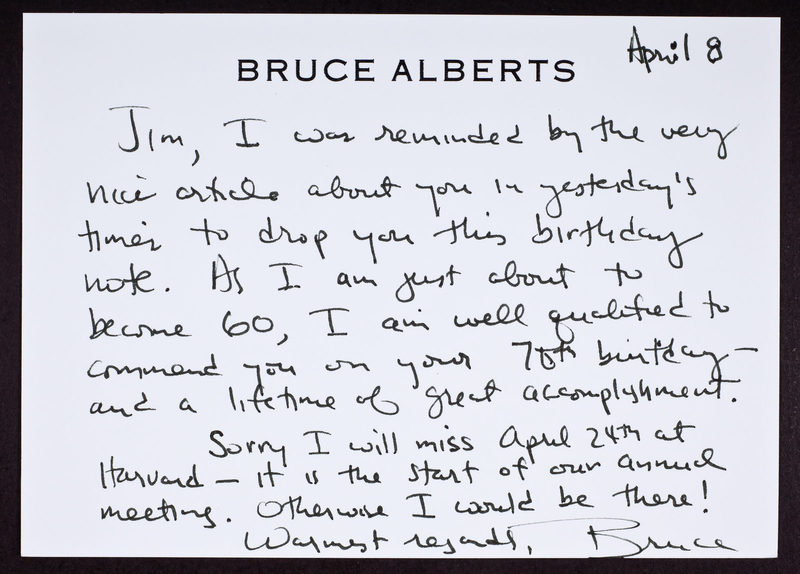 April 8
BRUCE ALBERTS
Jim, I was reminded by the very
nice article about you in yesterday's
times to drop you this birthday
note. As I am just about to
become 60, I am well qualified to
commend you on your 70th birthday —
and a lifetime of great accomplishment.
Sorry I will miss April 24th at
Harvard — it is the start of our annual
meeting. Otherwise I would be there!
Warmest regards, Bruce